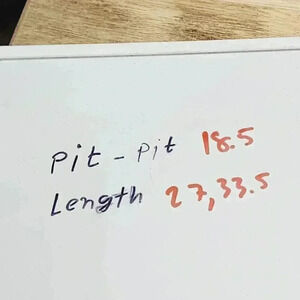 Pit - Pit 18.5
Length 27,33.5